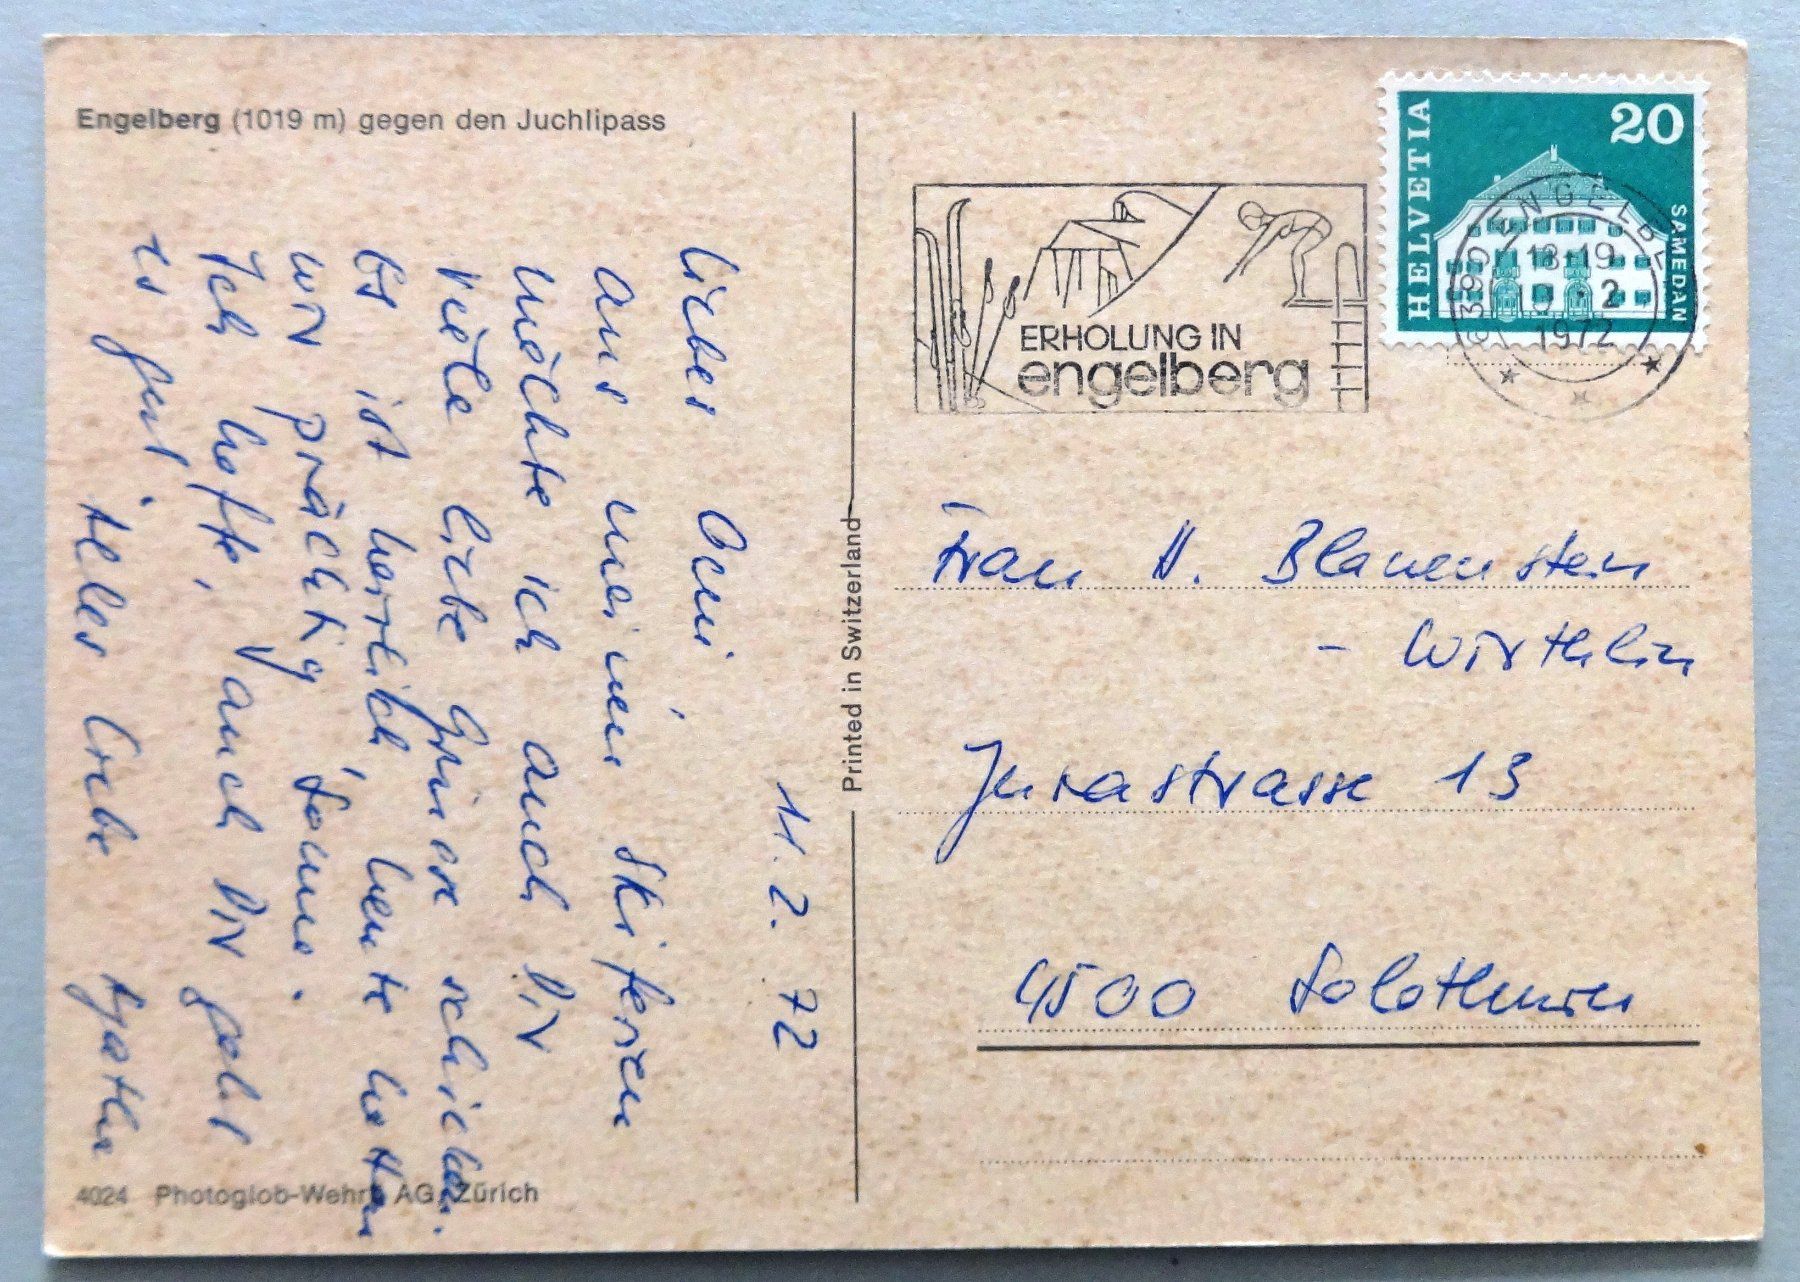 Engelberg (1019 m) gegen den Juchlipass
11. 2. 72
Liebes Omi,
aus meinen Skiferien
möchte ich auch Dir
viele liebe Grüsse schicken.
Es ist herrlich, heute hatten
wir prächtig Sonne.
Ich hoffe, auch Dir geht
es gut. Alles Liebe Agatha
4024 Photoglob-Wehrli AG, Zürich
Printed in Switzerland
ERHOLUNG IN
engelberg
HELVETIA
20
SAMEDAN
6390 ENGELBERG
18-19
2
1972
Frau H. Blauenstein
- Wirthlin
Jurastrasse 13
4500 Solothurn